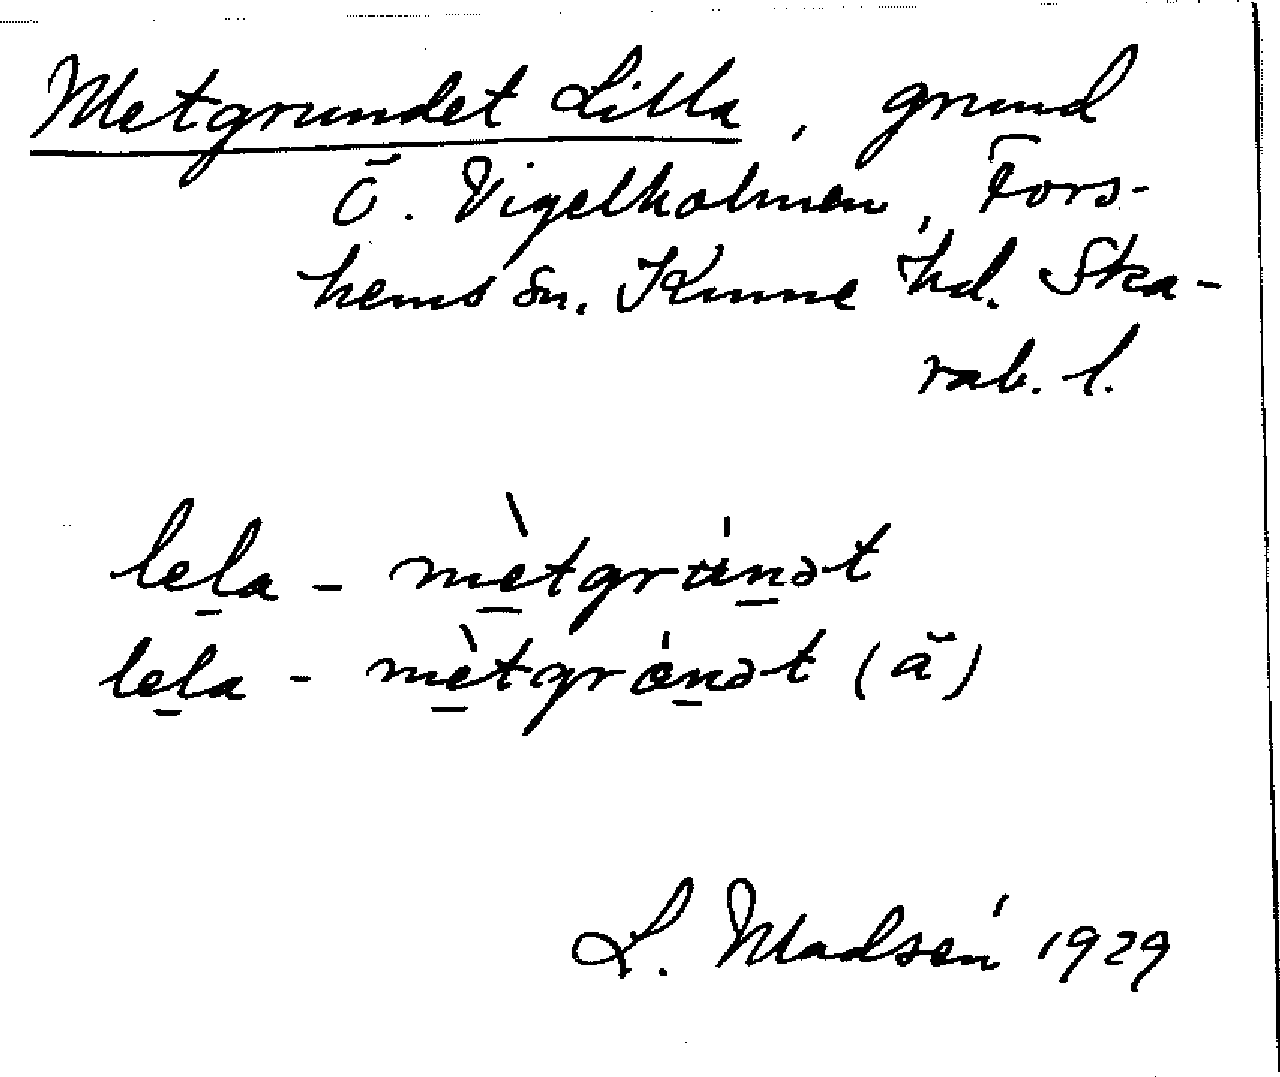 Metgrundet Lilla, grund
Ö. Vigelholmen, Fors-
hems sn. Kinne hd. Ska-
rab. l.
lela - mètgrunət
lela - mètgrənət (ă)
L. Madsén 1929